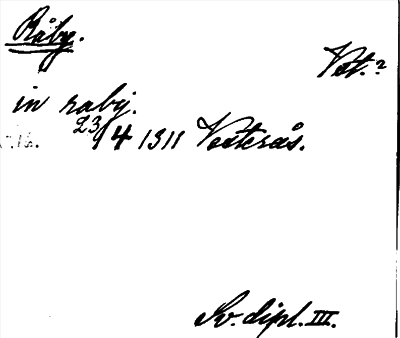 Råby.
Vest.?
in raby.
23/4 1311 Vesterås.
Sv. dipl. III.